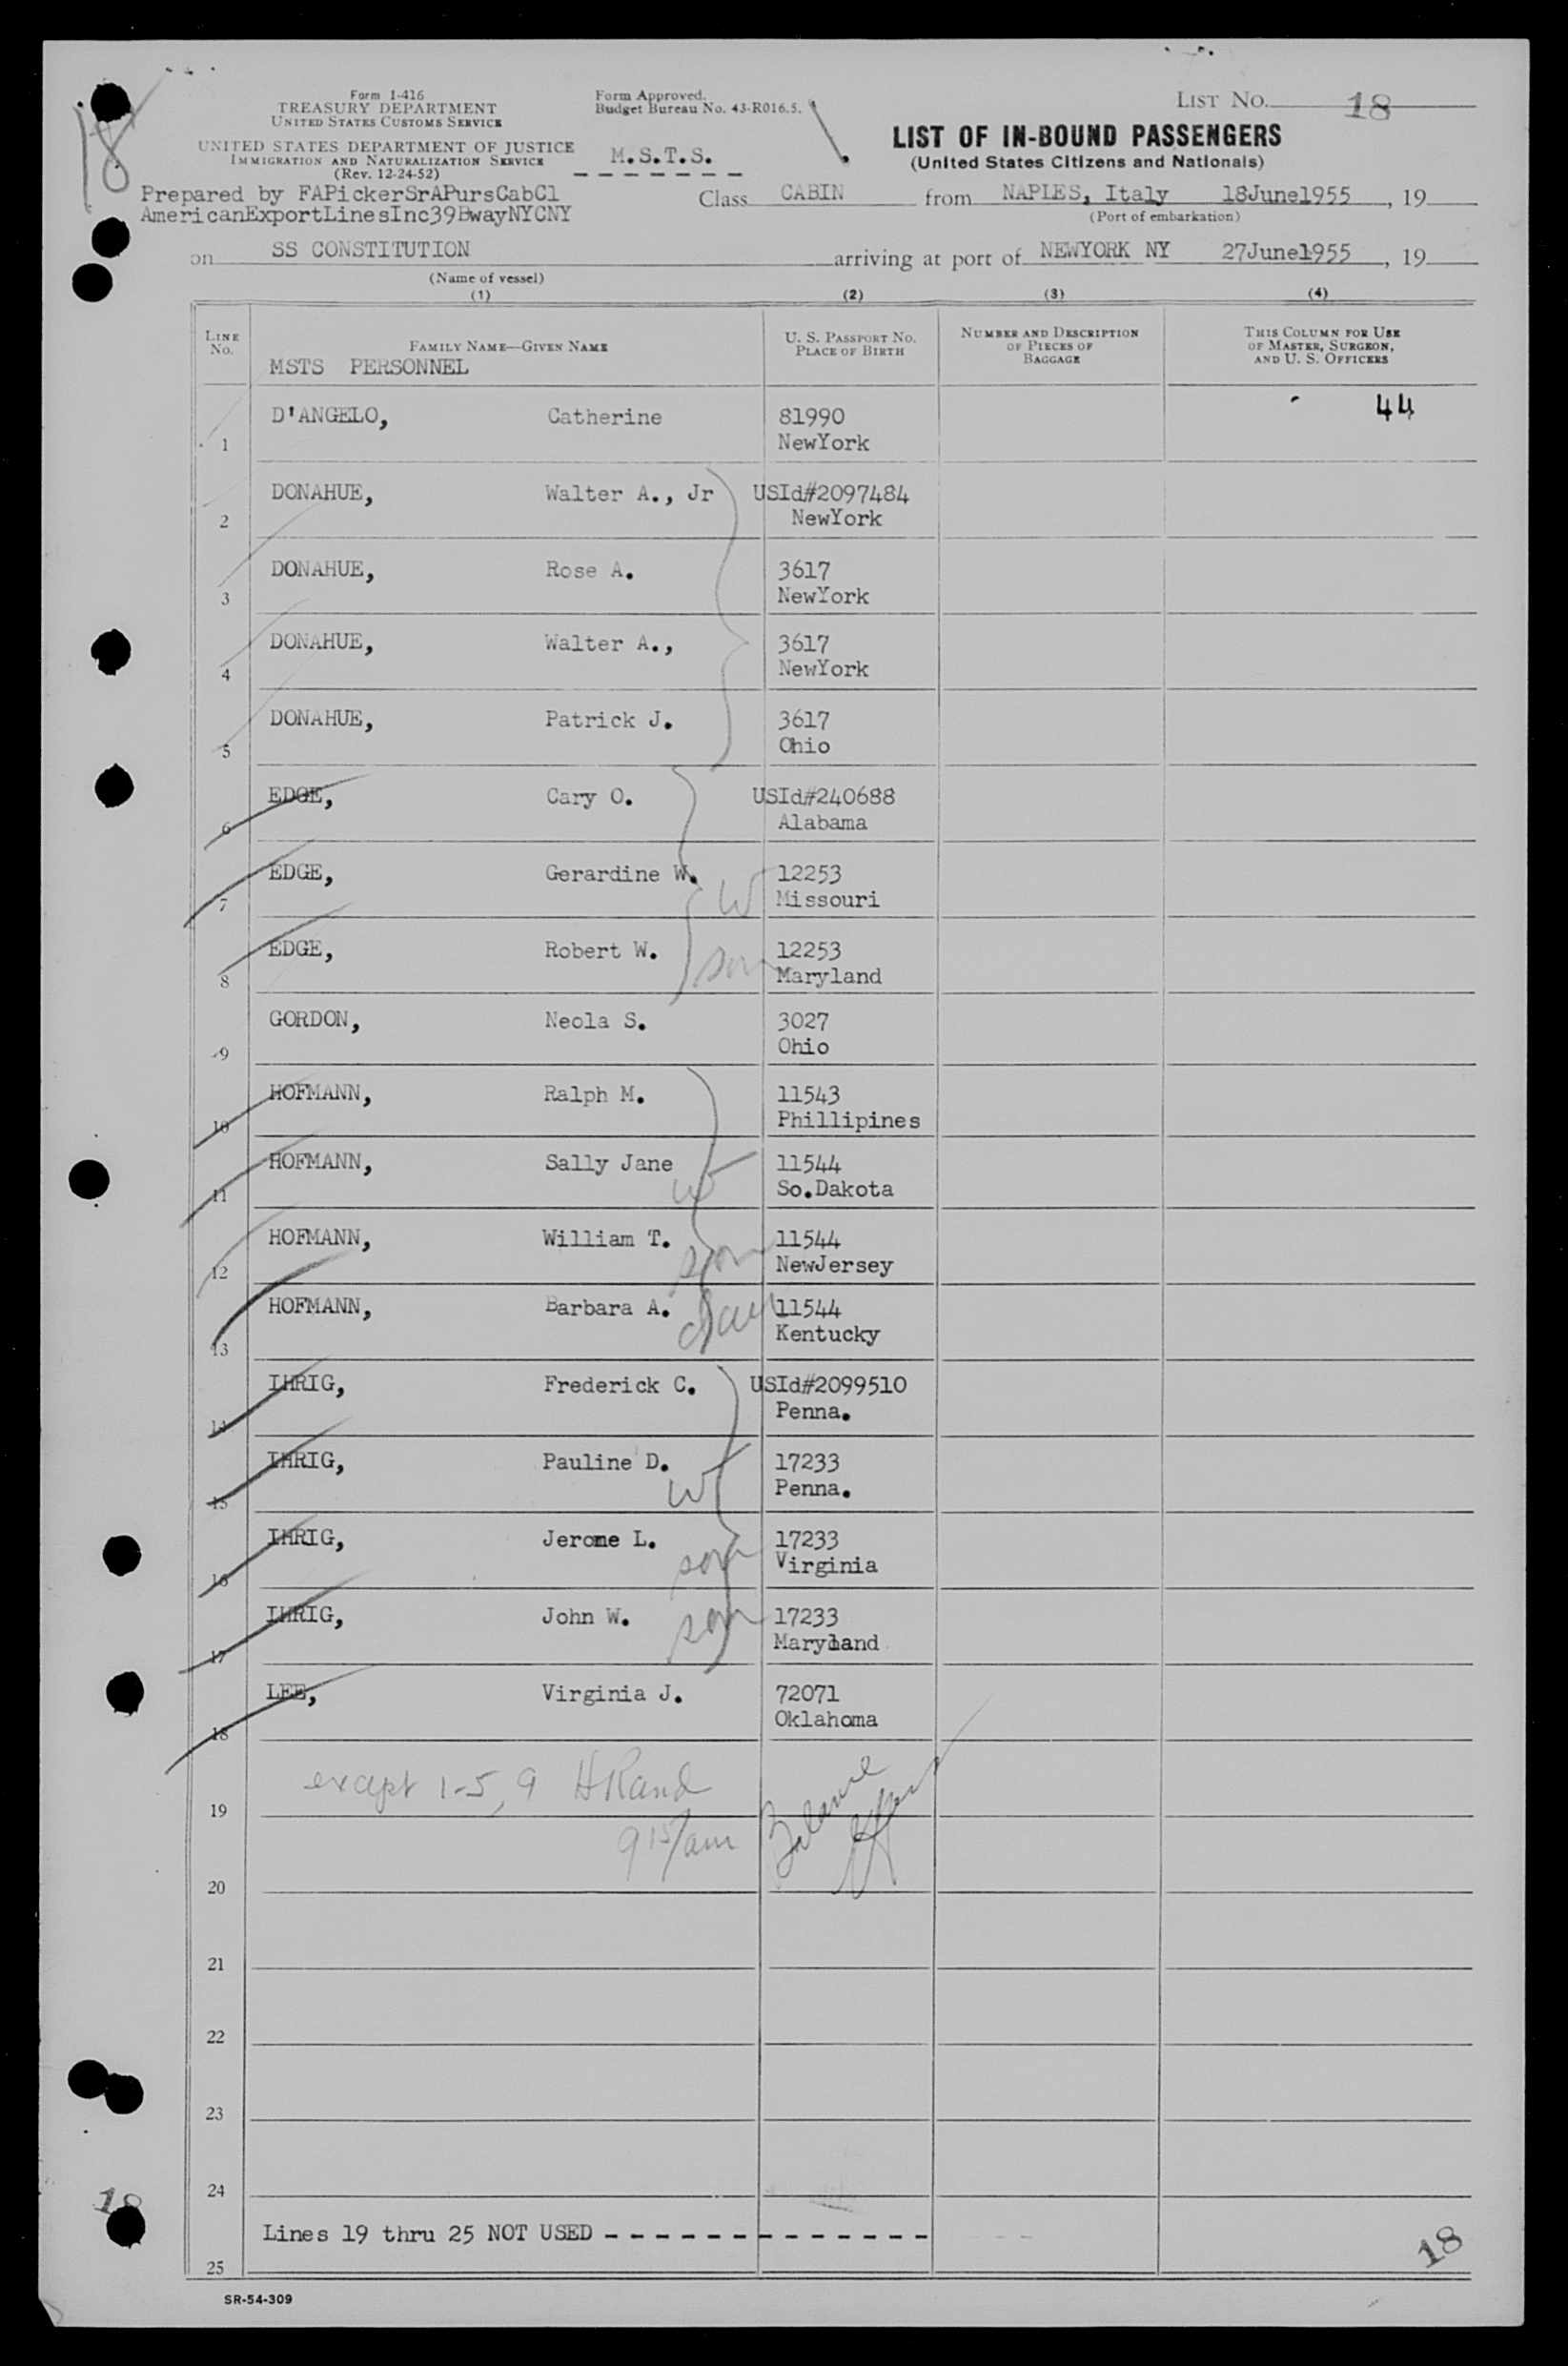 18
Form 1-416
TREASURY DEPARTMENT
UNITED STATES CUSTOMS SERVICE
UNITED STATES DEPARTMENT OF JUSTICE
IMMIGRATION AND NATURALIZATION SERVICE
(Rev. 12-24-52)
Form Approved.
Budget Bureau No. 43-R016.5.
M.S.T.S.
LIST NO. 18
LIST OF IN-BOUND PASSENGERS
(United States Citizens and Nationals)
Prepared by FAPickerSrAPursCabCl
AmericanExportLinesInc39BwayNYCNY
Class CABIN from NAPLES, Italy 18June1955, 19
(Port of embarkation)
on SS CONSTITUTION arriving at port of NEWYORK NY 27June1955, 19
(Name of vessel)
(1) (2) (3) (4)
LINE NO.
FAMILY NAME—GIVEN NAME
U. S. PASSPORT NO.
PLACE OF BIRTH
NUMBER AND DESCRIPTION
OF PIECES OF
BAGGAGE
THIS COLUMN FOR USE
OF MASTER, SURGEON,
AND U. S. OFFICERS
MSTS PERSONNEL
44
1 D'ANGELO, Catherine 81990
NewYork
2 DONAHUE, Walter A., Jr USId#2097484
NewYork
3 DONAHUE, Rose A. 3617
NewYork
4 DONAHUE, Walter A., 3617
NewYork
5 DONAHUE, Patrick J. 3617
Ohio
6 EDGE, Cary O. USId#240688
Alabama
7 EDGE, Gerardine W. W 12253
Missouri
8 EDGE, Robert W. son 12253
Maryland
9 GORDON, Neola S. 3027
Ohio
10 HOFMANN, Ralph M. 11543
Phillipines
11 HOFMANN, Sally Jane W 11544
So.Dakota
12 HOFMANN, William T. son 11544
NewJersey
13 HOFMANN, Barbara A. dau 11544
Kentucky
14 IHRIG, Frederick C. USId#2099510
Penna.
15 IHRIG, Pauline D. W 17233
Penna.
16 IHRIG, Jerome L. son 17233
Virginia
17 IHRIG, John W. son 17233
Maryland
18 LEE, Virginia J. 72071
Oklahoma
except 1-5, 9 HRand
19
915/am
Balance
20
21
22
23
24
Lines 19 thru 25 NOT USED - - - - - - - - - - - - -
25
18
18
SR-54-309